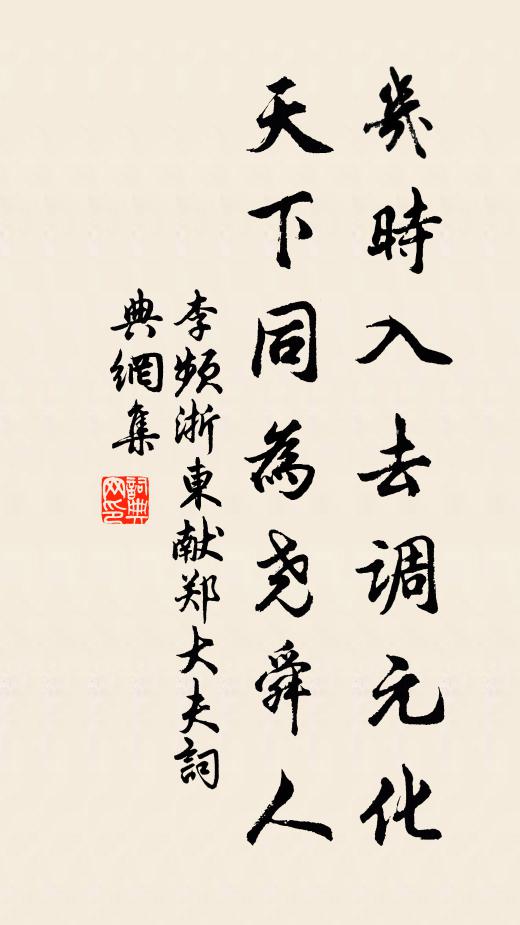 幾時入去调元化
天下同為尧舜人
李频浙東献郑大夫詞
典網集
詞典网印